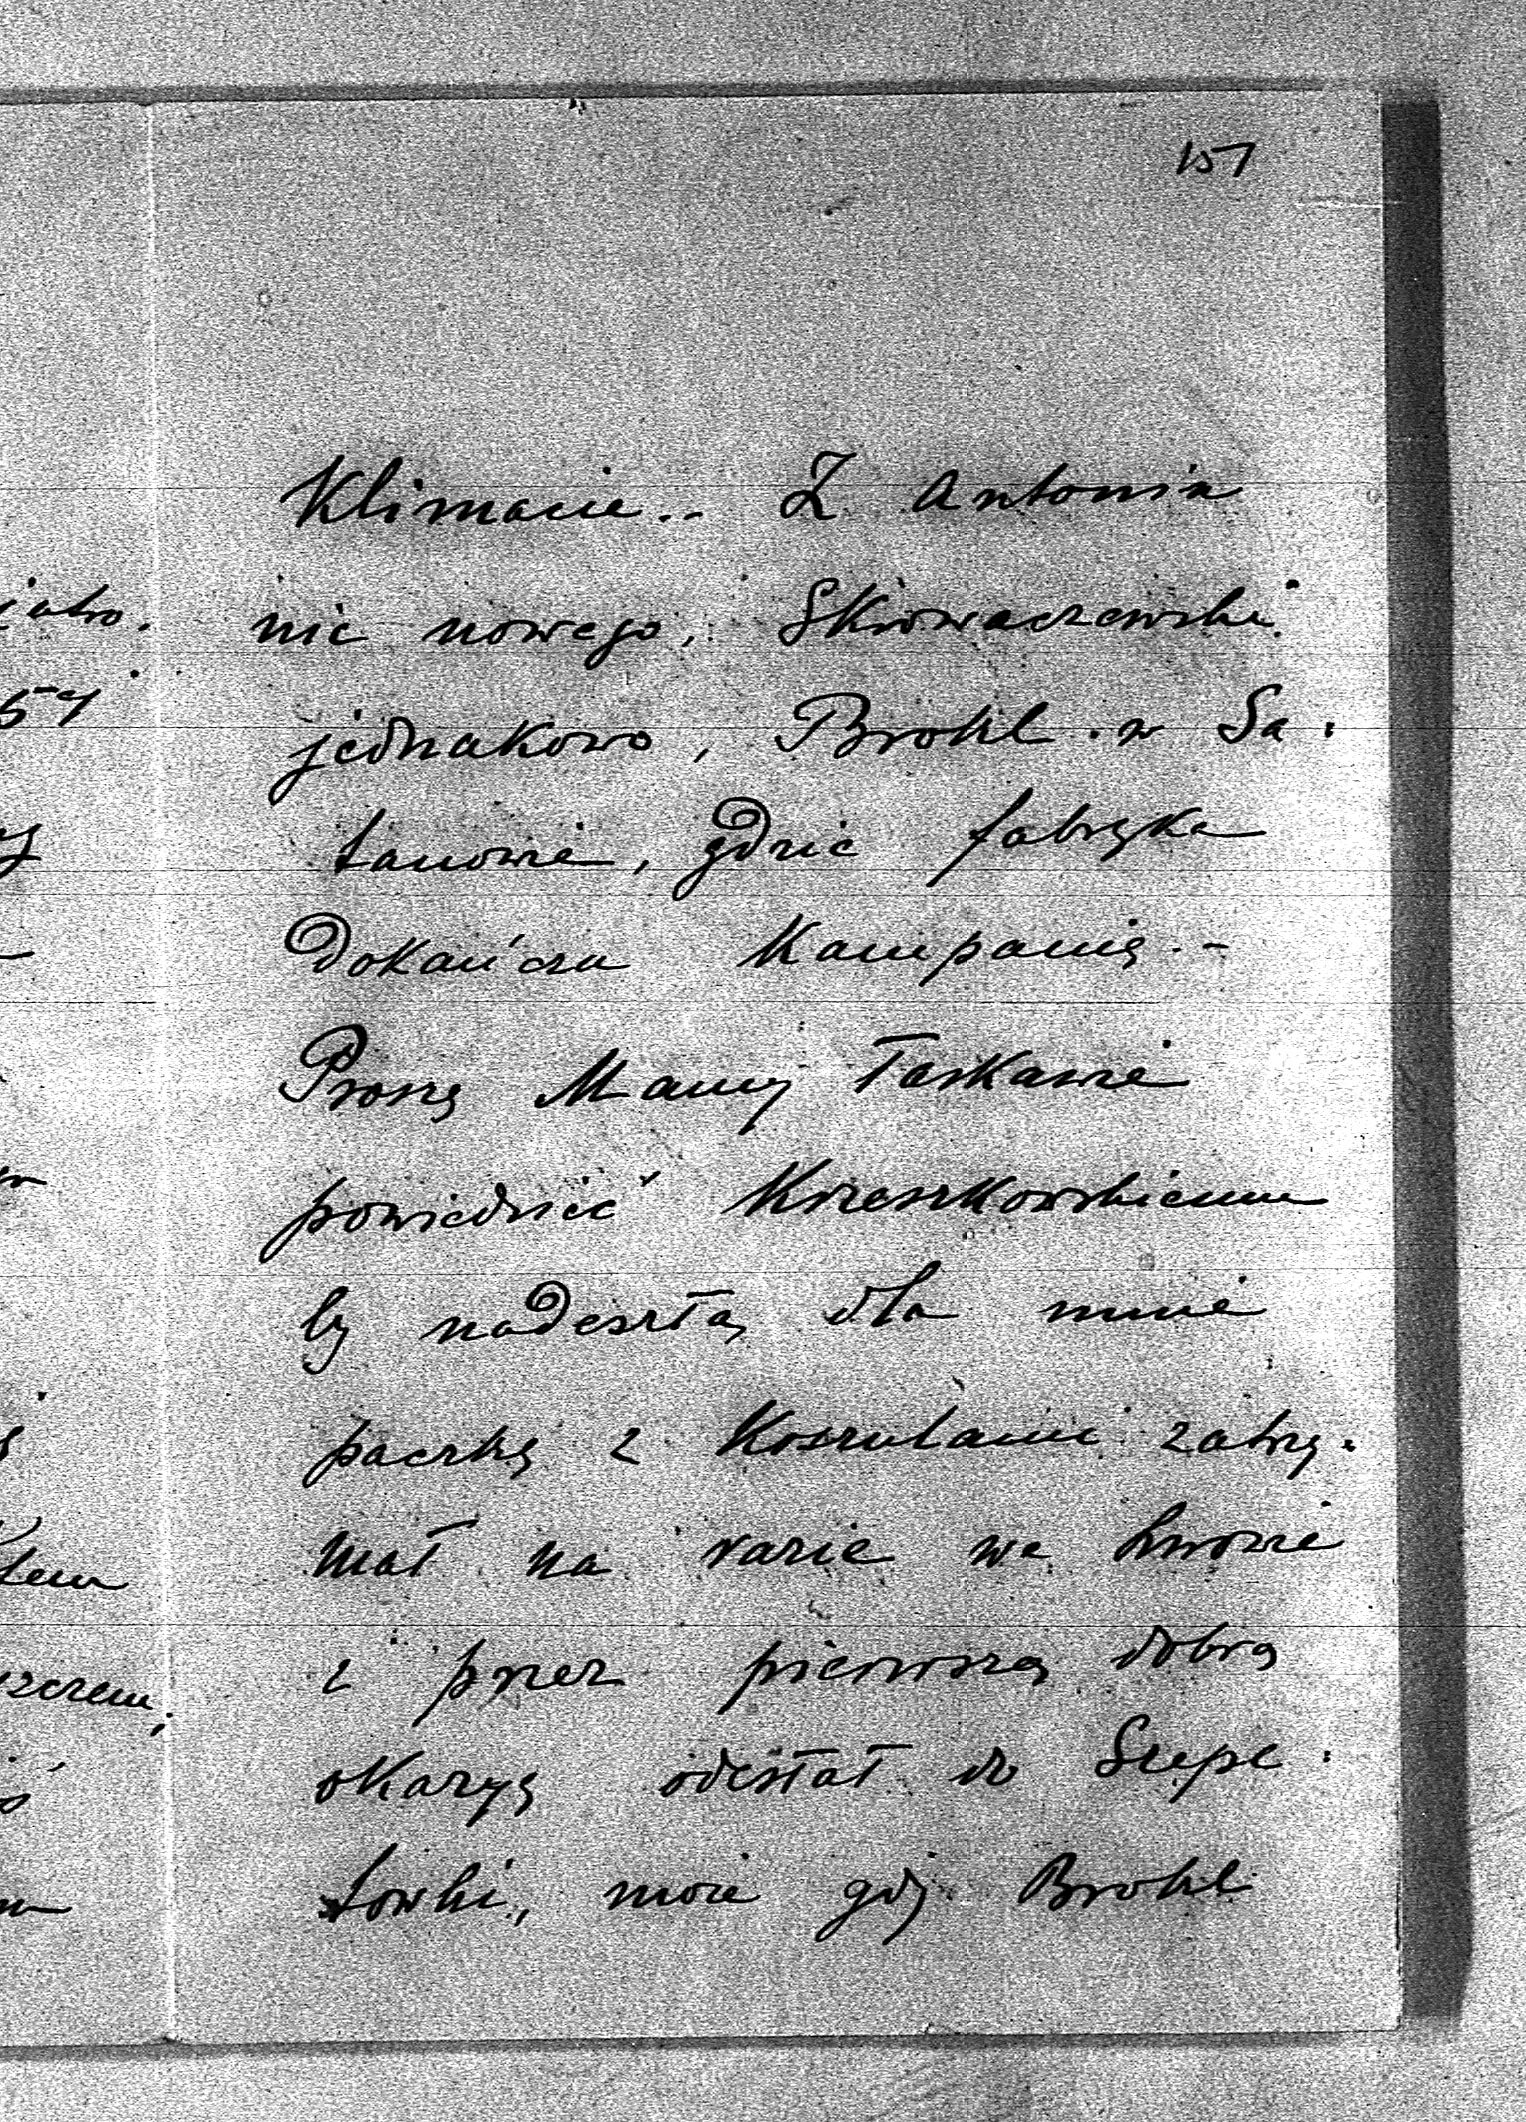 157
Klimacie.. Z Antonin
nic nowego, Skrowaczewski
jednakowo, Brokl w Sa.
tanowie, gdzie fabryka
dokańcza kampanię. -
Proszę Mamy łaskawie
powiedzieć Kreszkowskiemu
by nadeszłą dla mnie
paczkę z koszulami zatrzy.
mał na razie we Lwowie
i przez pierwszą dobrą
okazyę odesłał do Szepe.
towki, może gdy Brokl